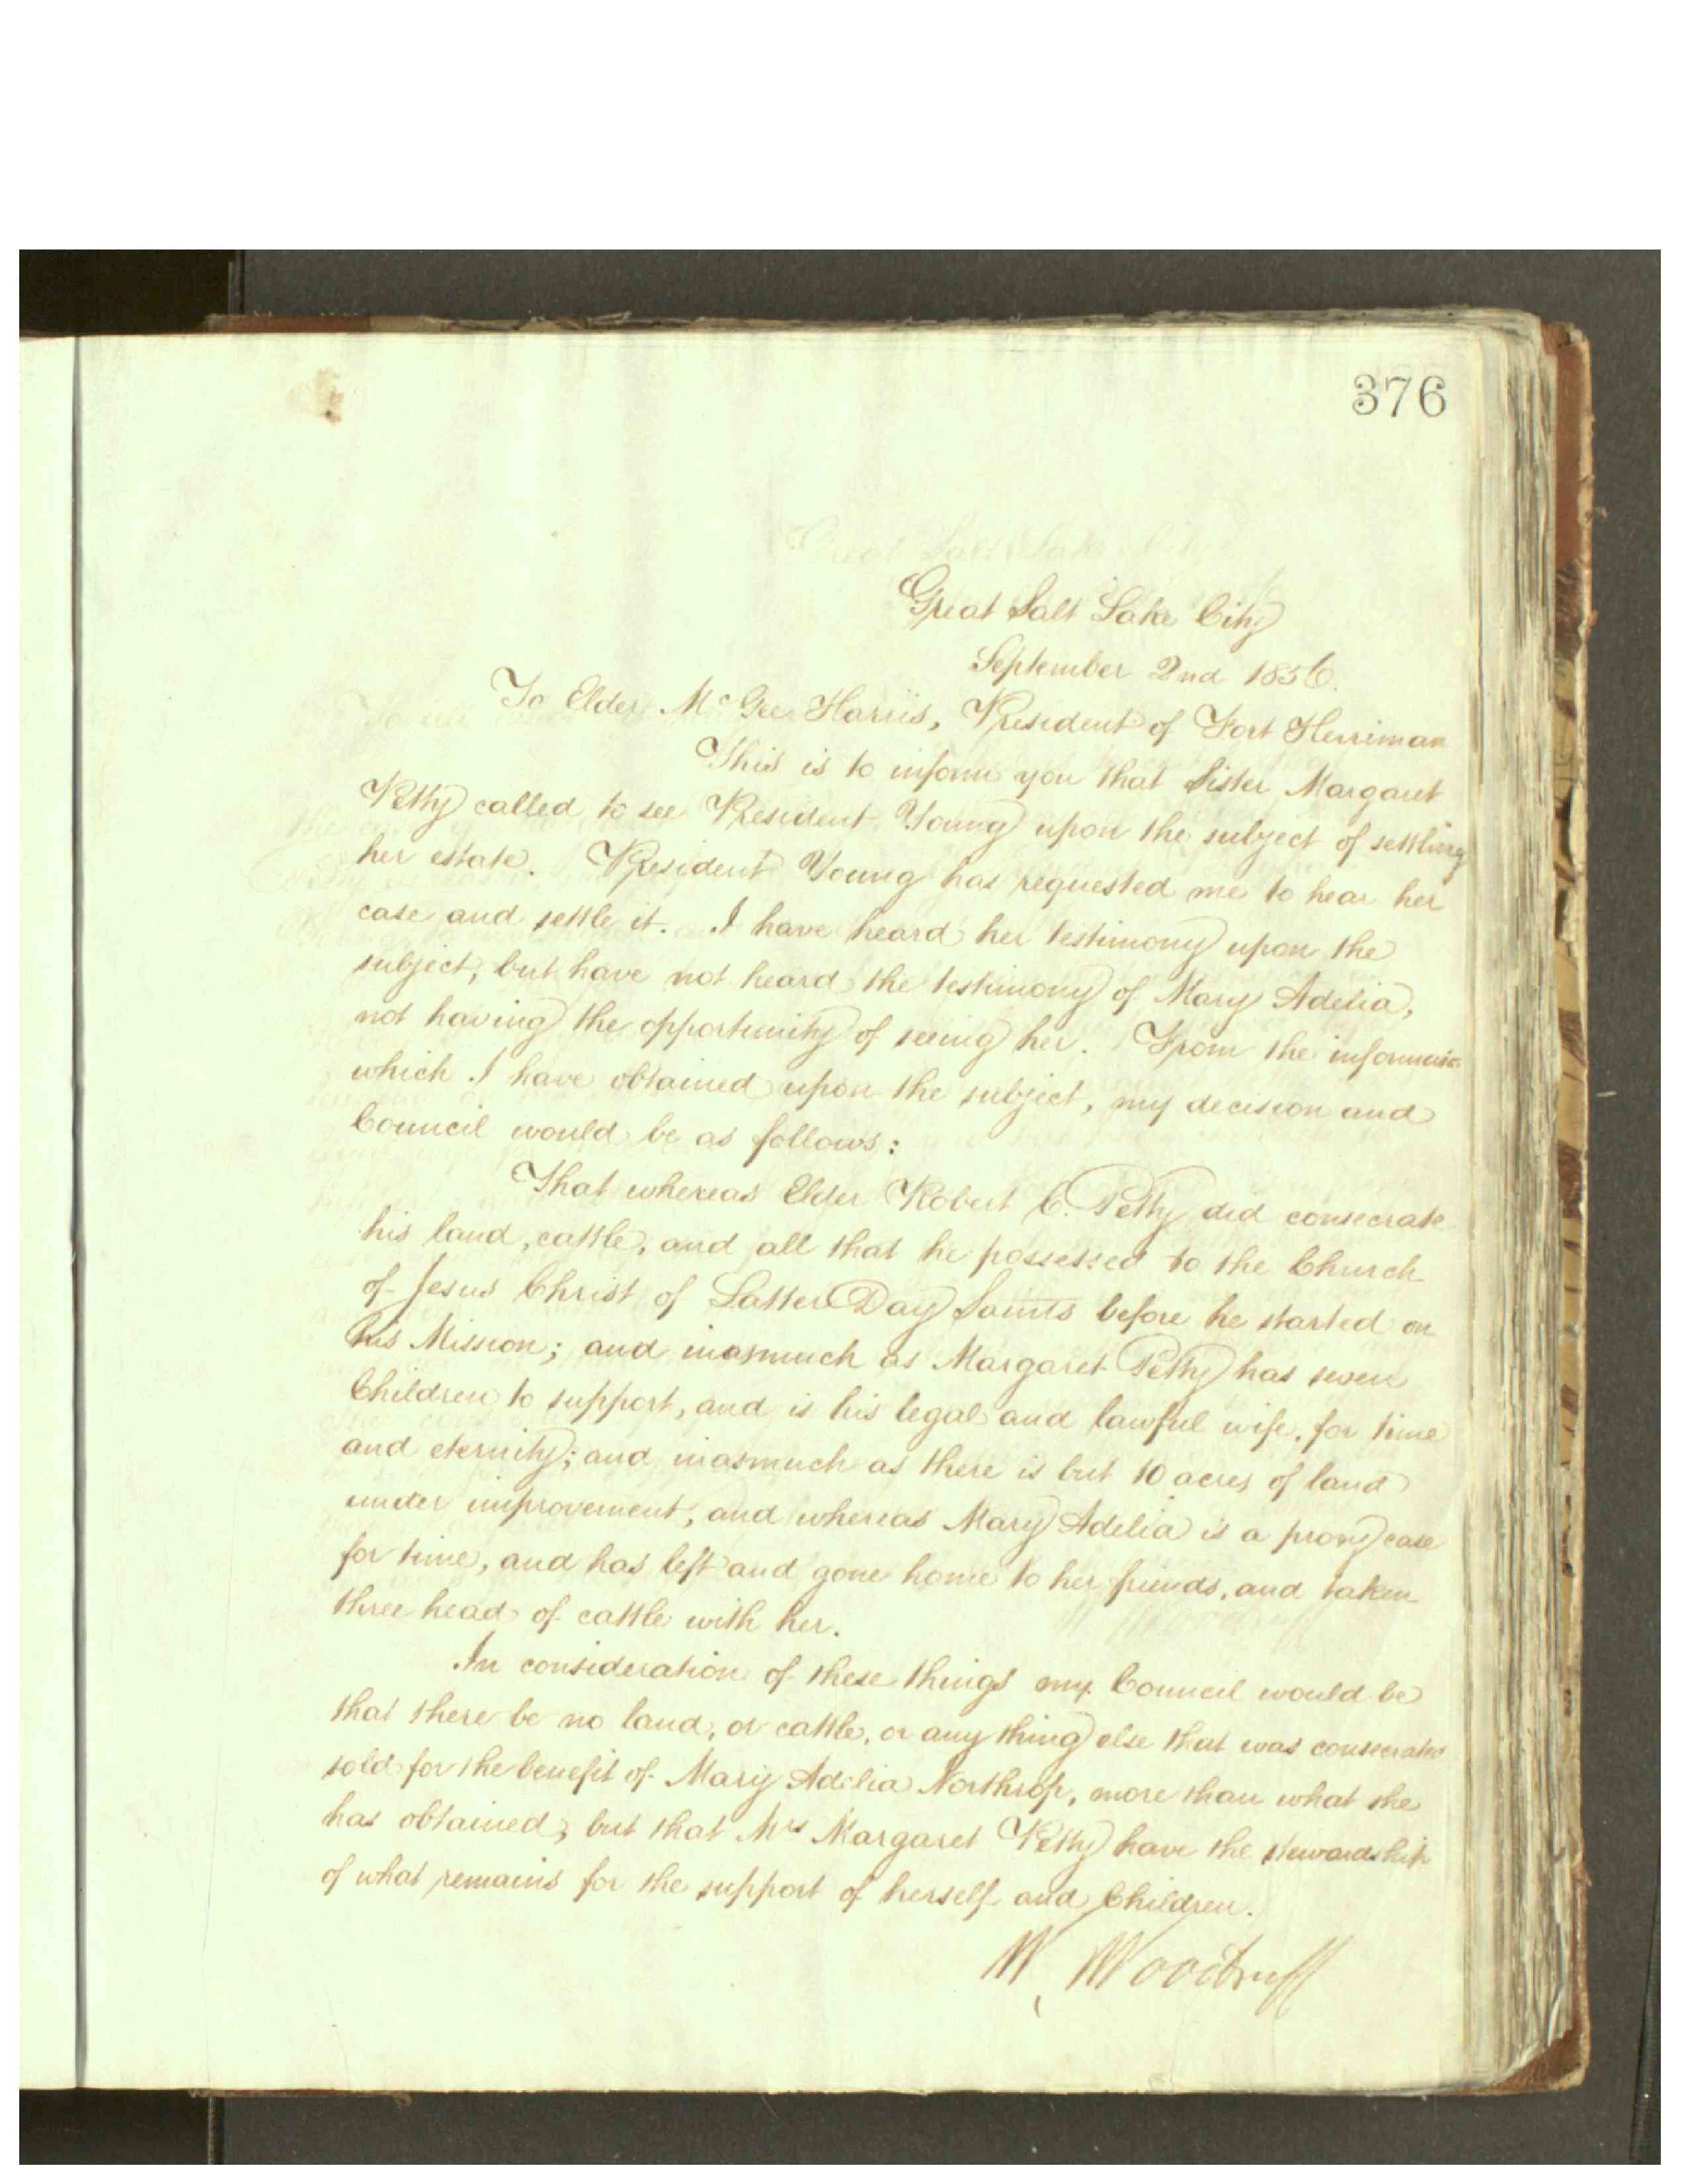 376
Great Salt Lake City
September 2nd 1856.
To Elder McGee Harris, President of Fort Herriman
This is to inform you that Sister Margaret
Petty called to see President Young upon the subject of settling
her estate. President Young has requested me to hear her
case and settle it. I have heard her testimony upon the
subject, but have not heard the testimony of Mary Adelia,
not having the opportunity of seeing her. From the
which I have obtained upon the subject, my decision and
Council would be as follows:
That whereas Elder Robert C. Petty did consecrate
his land, cattle, and all that he possessed to the Church
of Jesus Christ of Latter Day Saints before he started on
his Mission; and inasmuch as Margaret Petty has seven
Children to support, and is his legal and lawful wife, for time
and eternity; and inasmuch as there is but 10 acres of land
under improvement, and whereas Mary Adelia is a proxy case
for time, and has left and gone home to her friends, and taken
three head of cattle with her.
In consideration of these things my Council would be
that there be no land, or cattle, or any thing else that was consecrated
sold for the benefit of Mary Adelia Northrop, more than what she
has obtained; but that Mrs Margaret Petty have the stewardship
of what remains for the support of herself and Children.
W. Woodruff